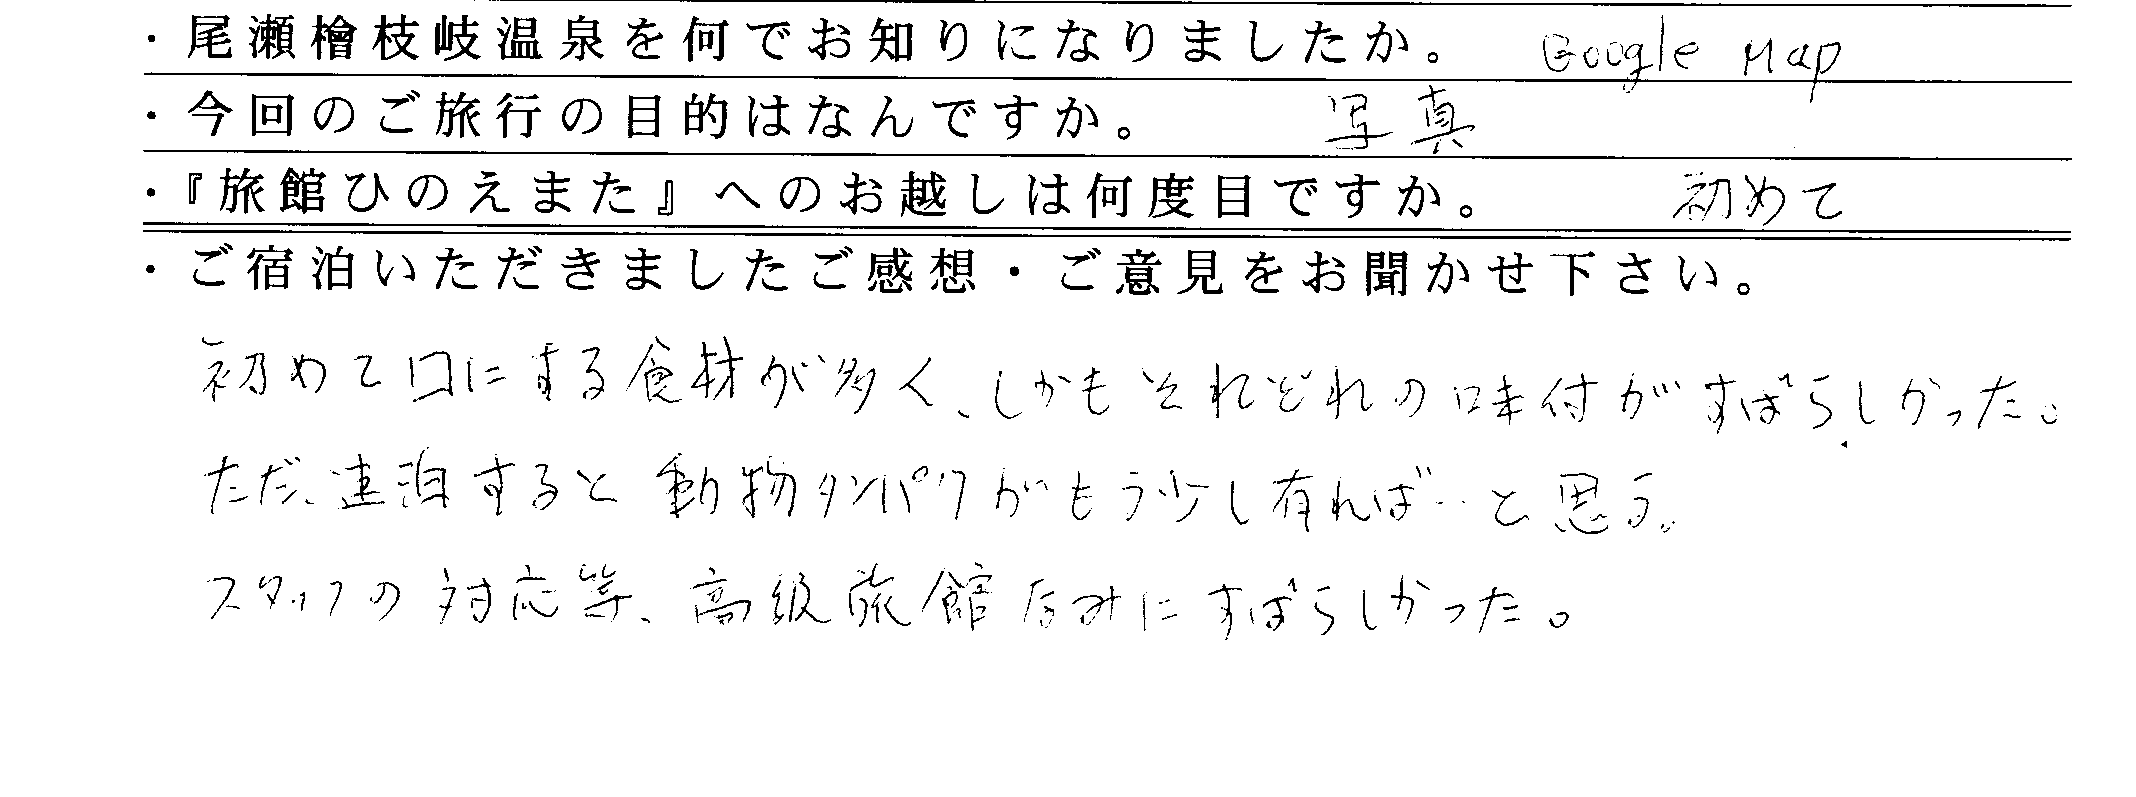 ・尾瀬檜枝岐温泉を何でお知りになりましたか。 Google Map
・今回のご旅行の目的はなんですか。 写真
・『旅館ひのえまた』へのお越しは何度目ですか。 初めて
・ご宿泊いただきましたご感想・ご意見をお聞かせ下さい。
初めて口にする食材が多く、しかもそれぞれの味付がすばらしかった。
ただ、連泊すると動物タンパクがもう少し有れば…と思う。
スタッフの対応等、高級旅館なみにすばらしかった。